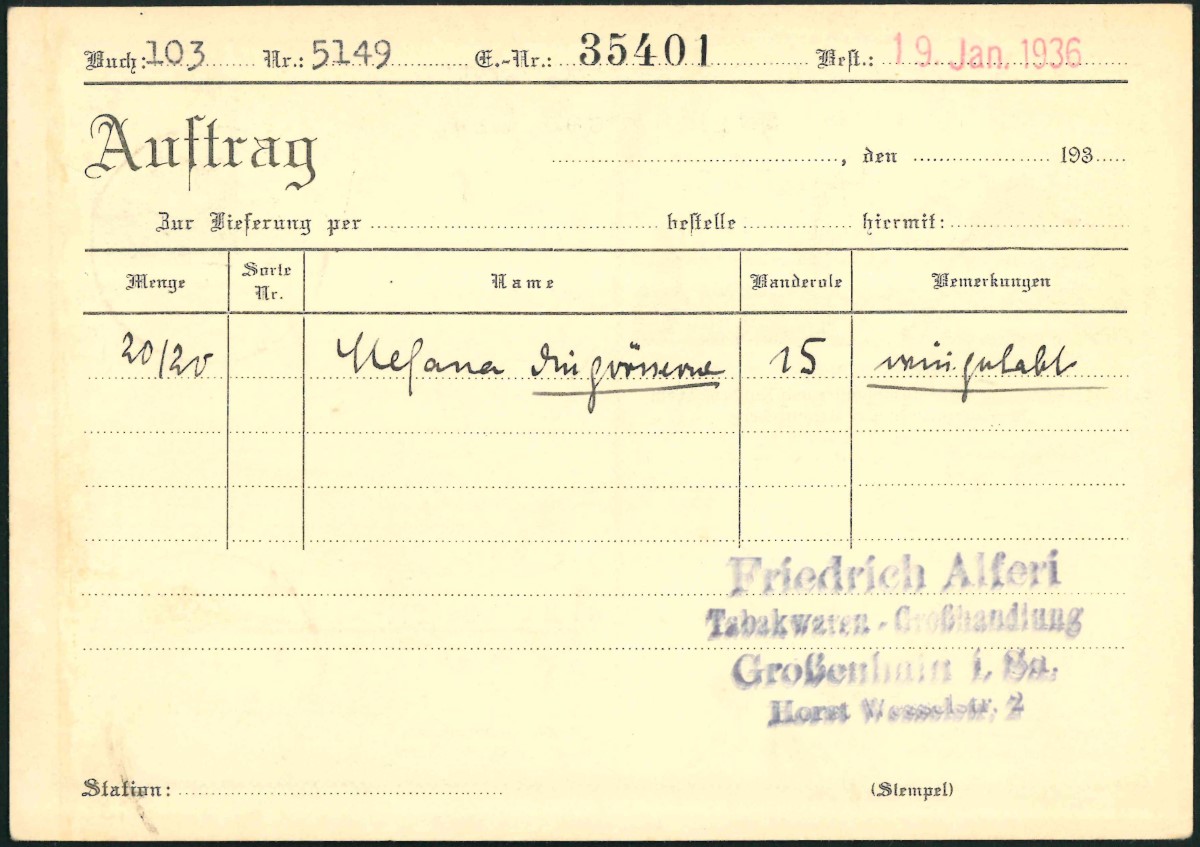 Buch: 103 Nr.: 5149 E.-Nr.: 35401 Best.: 19. Jan. 1936
Auftrag
, den 193
Zur Lieferung per bestelle hiermit:
Menge Sorte Nr. Name Banderole Bemerkungen
20/20 15
Friedrich Alferi
Tabakwaren - Großhandlung
Großenhain i. Sa.
Horst Wesselstr. 2
Station: (Stempel)